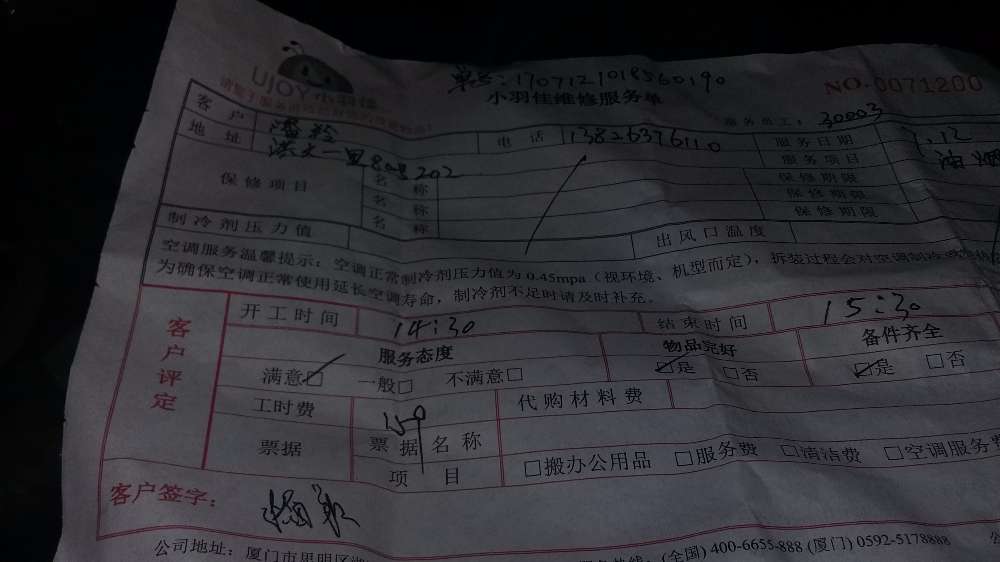 UJOY小羽佳
单号:1707121018560190
小羽佳维修服务单
NO.0071200
服务员工: 30003
客户 潘 电话 13826376110 服务日期 7.12
地址 一里80号202 服务项目 油烟
保修项目 名称 保修期限
名称 保修期限
名称 保修期限
制冷剂压力值 出风口温度
空调服务温馨提示:空调正常制冷剂压力值为0.45mpa(视环境、机型而定),拆装过程会对空调制冷
为确保空调正常使用延长空调寿命,制冷剂不足时请及时补充。
客户评定
开工时间 14:30 结束时间 15:30
服务态度 物品完好 备件齐全
满意☑ 一般□ 不满意□ ☑是 □否 ☑是 □否
工时费 代购材料费
票据 票据名称
项目 □搬办公用品 □服务费 □清洁费 □空调服务费
客户签字:
公司地址:厦门市思明区 (全国) 400-6655-888 (厦门) 0592-5178888